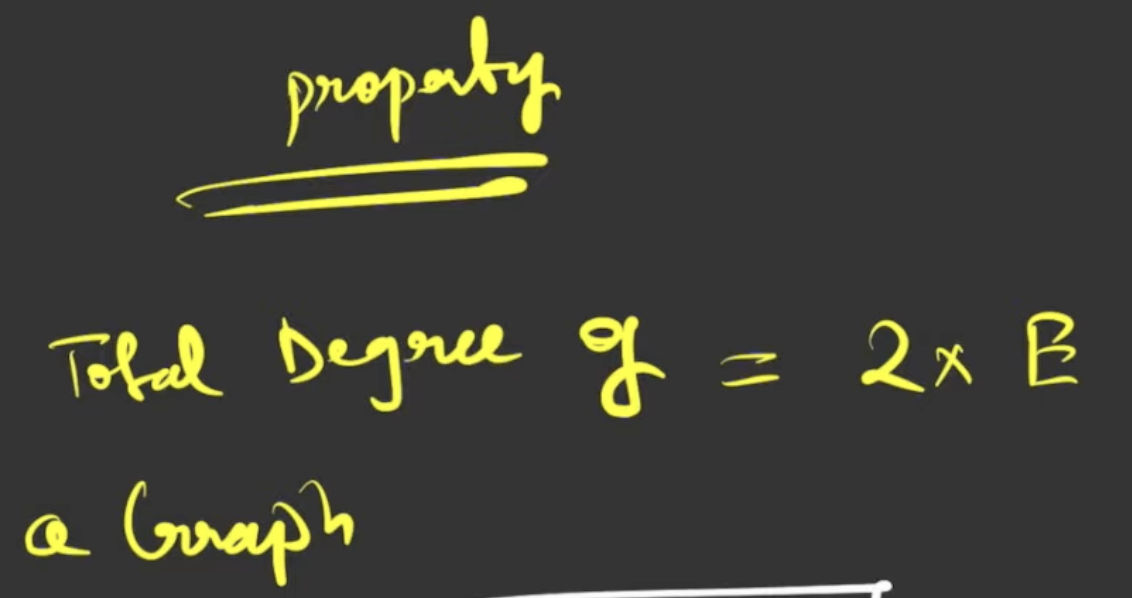 property
Total Degree of = 2 x E
a Graph